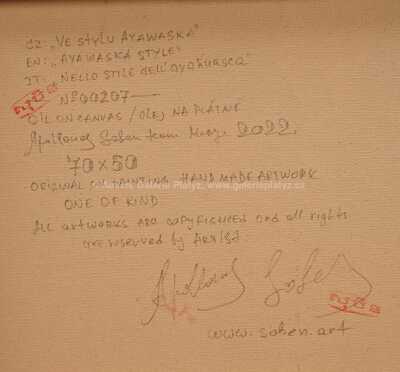 CZ: „VE STYLU AYAWASKA"
EN: „AYAWASKA STYLE"
IT: „NELLO STILE DELL'
Nº 00207
OIL ON CANVAS / OLEJ NA PLÁTNĚ
Soben team 2022
70x50
© Autoři, Galerie Platýz, www.galerieplatyz.cz
ORIGINAL OIL PAINTING HAND MADE ARTWORK
ONE OF KIND
ALL ARTWORKS ARE COPYRIGHTED and all rights
are reserved by Artist
www.soben.art